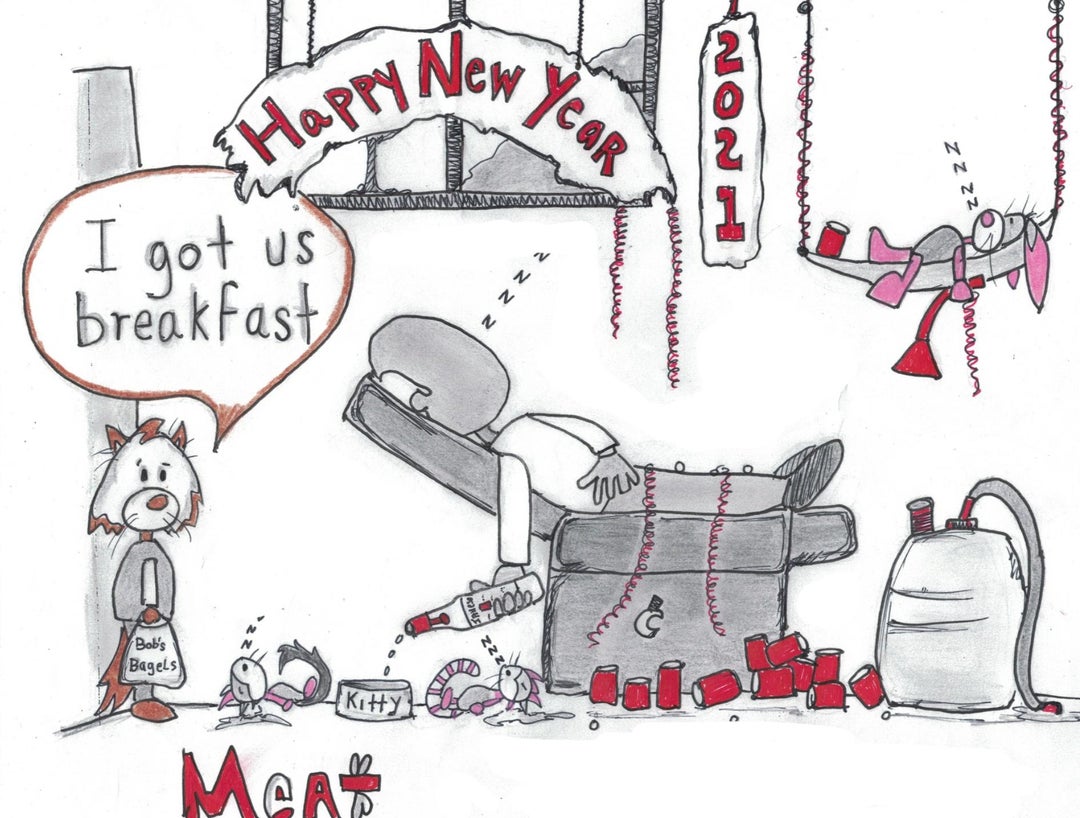 Happy New Year
2021
I got us
breakfast
zzzz
zzzz
Bob's
Bagels
zzz
zzz
Kitty
C
Meat